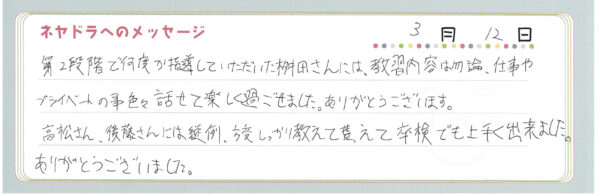 ネヤドラへのメッセージ
3月12日
第2段階で何度か指導していただいた桝田さんには、教習内容は勿論、仕事や
プライベートの事色々話せて楽しく過ごせました。ありがとうございます。
高松さん、後藤さんには縦列、方変しっかり教えて貰えて卒検でも上手く出来ました。
ありがとうございました。